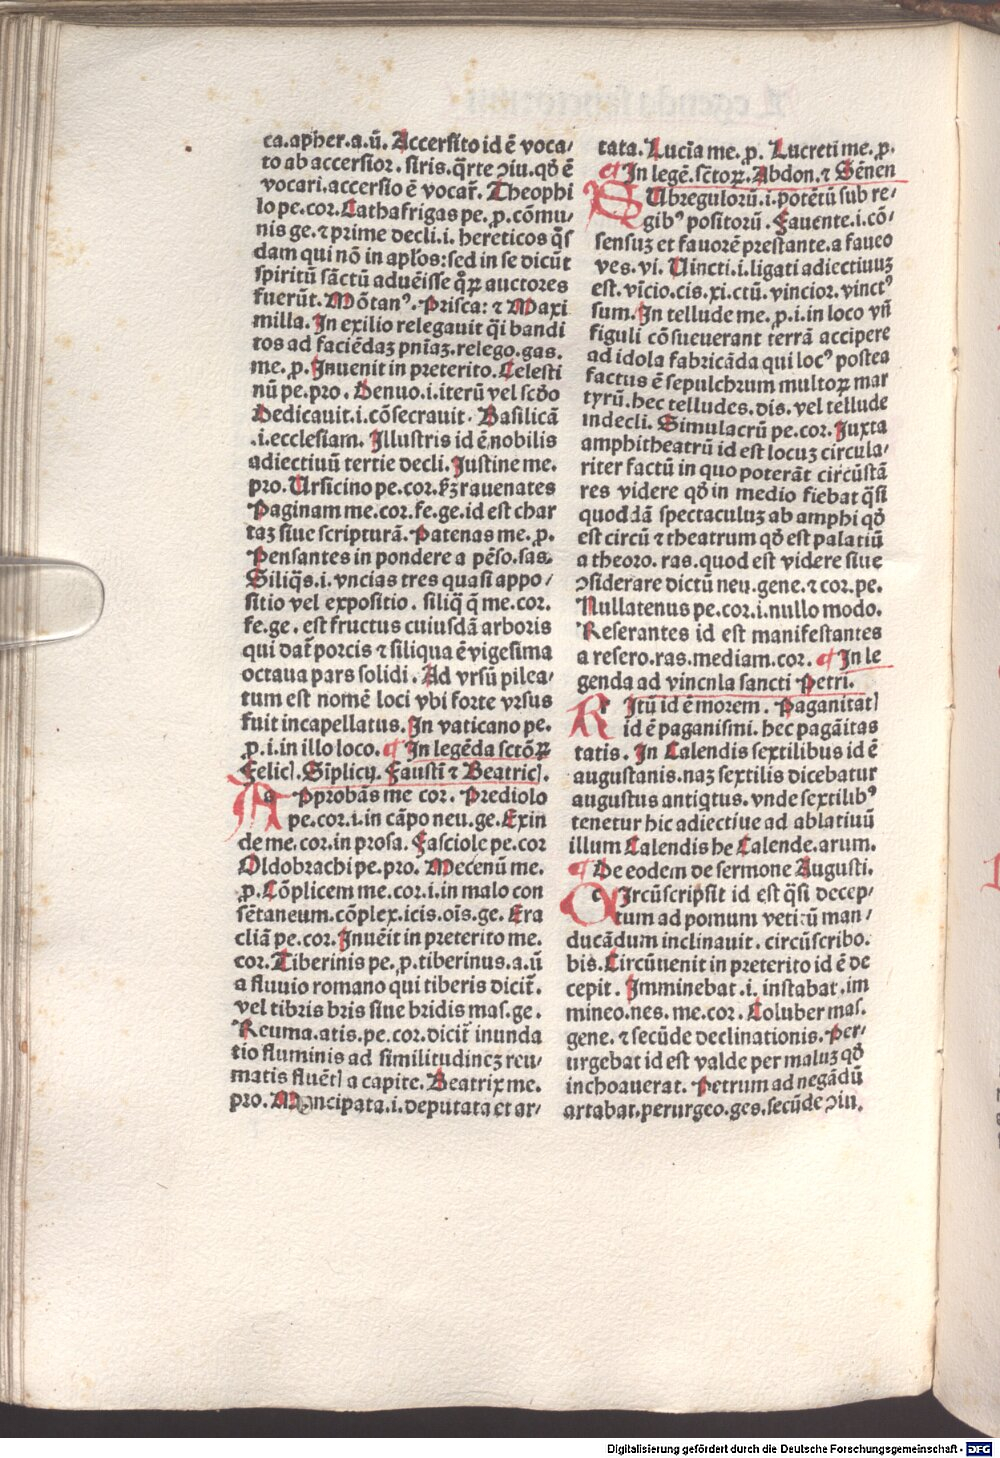 ca.apher.a.ū. Accersito id ē voca/
to ab accersior.siris.q̄rte ↄiu.qđ ē
vocari.accersio ē vocar̄. Theophi
lo pe.cor. Cathafrigas pe.ꝓ.cōmu/
nis ge.⁊ prime decli.i. hereticos q̄s
dam qui nō in apl̄os:sed in se dicūt
spiritū sāctū aduēisse q̄ꝝ auctores
fuerūt. Mōtanꝰ. Prisca: ⁊ Maxi
milla. In exilio relegauit q̄i bandi
tos ad faciēdaꝫ pnīaꝫ.relego.gas.
me.ꝓ. Inuenit in preterito. Celesti
nū pe.pro. Denuo.i.iterū vel scđo
Dedicauit.i.cōsecrauit. Basilicā
.i.ecclesiam. Illustris id ē nobilis
adiectiuū tertie decli. Justine me.
pro. Ursicino pe.cor. rauenates
Paginam me.cor.fe.ge.id est char
taꝫ siue scripturā. Patenas me.ꝓ.
Pensantes in pondere a pēso.sas.
Siliq̄s.i.vncias tres quasi appo/
sitio vel expositio. siliq̄ q̄ me.cor.
fe.ge. est fructus cuiusdā arboris
qui dat̄ porcis ⁊ siliqua ē vigesima
octaua pars solidi. Ad vrsū pilea/
tum est nomē loci vbi forte vrsus
fuit incapellatus. In vaticano pe.
ꝓ.i.in illo loco. ¶ In legēda sctōꝝ
Felicꝭ. Sīplicij. Fausti ⁊ Beatricꝭ.
Aa Pprobās me cor. Prediolo
pe.cor.i.in cāpo neu.ge. Exin
de me.cor.in prosa. Fasciole pe.cor
Oldobrachi pe.pro. Mecenū me.
ꝓ. Cōplicem me.cor.i.in malo con
sētaneum.cōplex.icis.oīs.ge. Era
cliā pe.cor. Inuēit in preterito me.
cor. Tiberinis pe.ꝓ.tiberinus.a.ū
a fluuio romano qui tiberis dicit̄.
vel tibris bris siue bridis mas.ge.
Reuma.atis.pe.cor.dicit̄ inunda
tio fluminis ad similitudineꝫ reu/
matis fluētꝭ a capite. Beatrix me.
pro. Mancipata.i.deputata et ar/
tata. Lucīa me.ꝓ. Lucreti me.ꝓ.
¶ In legē.sctōꝝ. Abdon.⁊ Sēnen
S Ubregulorū.i.potētū sub re/
gibꝰ positorū. Fauente.i.cō/
sensuꝫ et fauorē prestante.a faueo
ves.vi. Uincti.i.ligati adiectiuuꝫ
est.vīcio.cis.xi.ctū.vincior.vinctꝰ
sum. In tellude me.ꝓ.i.in loco vn̄
figuli cōsueuerant terrā accipere
ad idola fabricāda qui locꝰ postea
factus ē sepulchrum multoꝝ mar
tyrū.hec telludes.dis.vel tellude
indecli. Simulacrū pe.cor. Juxta
amphitheatrū id est locuꝫ circula/
riter factū in quo poterāt circūstā
res videre qđ in medio fiebat q̄si
quoddā spectaculuꝫ ab amphi qđ
est circū ⁊ theatrum qđ est palatiū
a theoro.ras.quod est videre siue
ↄsiderare dictū neu.gene.⁊ cor.pe.
Nullatenus pe.cor.i.nullo modo.
Reserantes id est manifestantes
a resero.ras.mediam.cor. ¶ In le
genda ad vincnla sancti Petri.
Rr Itū id ē morem. Paganitatꝭ
id ē paganismi.hec pagāitas
tatis. In Calendis sextilibus id ē
augustanis.naꝫ sextilis dicebatur
augustus antiqtus.vnde sextilibꝰ
tenetur hic adiectiue ad ablatiuū
illum Calendis he Calende.arum.
¶ De eodem de sermone Augusti.
Cc Ircūscripsit id est q̄si decep/
tum ad pomum vetitū man/
ducādum inclinauit.circūscribo.
bis. Circūuenit in preterito id ē de
cepit. Imminebat.i.instabat.im
mineo.nes.me.cor. Coluber mas.
gene.⁊ secūde declinationis. Per/
urgebat id est valde per maluꝫ qđ
inchoauerat. Petrum ad negādū
artabat.perurgeo.ges.secūde ↄiu.
Digitalisierung gefördert durch die Deutsche Forschungsgemeinschaft - DFG